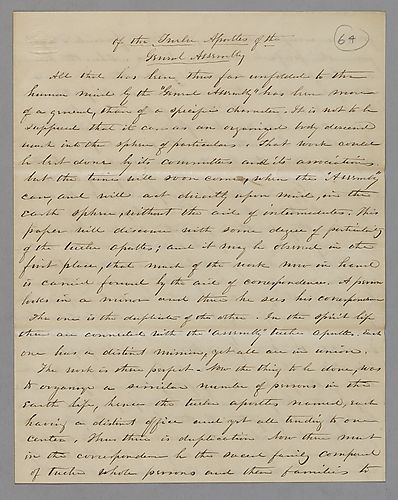 64
Of the Twelve Apostles of the
General Assembly
All that has been thus far unfolded to the
human mind by the "General Assembly" has been more
of a general, than of a specific character. It is not to be
supposed that it can as an organized body descend
much into the sphere of particulars. That work could
be best done by its committees and its associations,
but the time will soon come, when the "Assembly"
can, and will act directly upon minds, in the
earth sphere, without the aid of intermediates. This
paper will discourse with some degree of particularity
of the twelve apostles; and it may be observed in the
first place, that much of the work now in hand
is carried forward by the aid of correspondence. A person
looks in a mirror and there he sees his correspondence
The one is the duplicate of the other. In the Spirit life
there are connected with the "assembly" twelve apostles. Each
one has a distinct mission, yet all are in union.
The work is there perfect. Now the thing to be done, was
to organize a similar number of persons in the
Earth life, hence the twelve apostles named, each
having a distinct office and yet all tending to one
center. Thus there is duplication Now there must
in the correspondence be the sacred family composed
of twelve whole persons and their families to